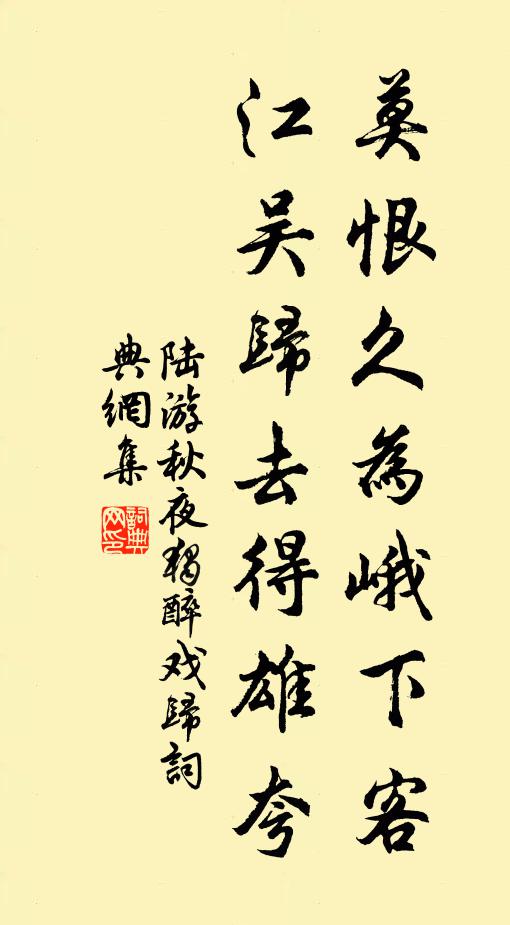 莫恨久為峨下客
江吴歸去得雄夸
陆游秋夜獨醉戏歸詞
典網集
詞典网印